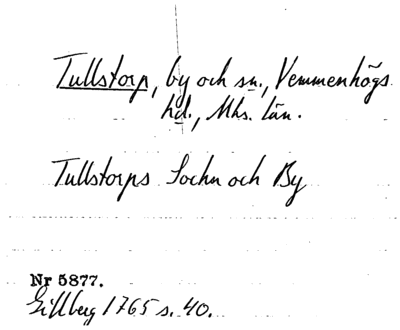 Tullstorp, by och sn., Vemmenhögs
hd., Mhs. län.
Tullstorps Sochn och By
Nr 5877.
Gillberg 1765 s. 40.